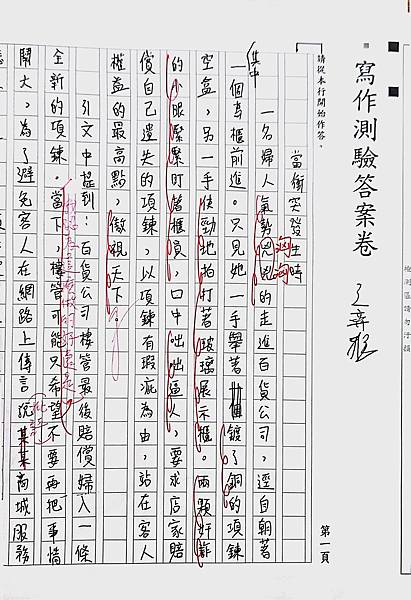 寫作測驗答案卷
請從本行開始作答。
第一頁
當衝突發生時
一名婦人氣勢兇兇的走進百貨公司,逕自朝著
其中
洶洶
一個專櫃前進。只見她一手舉著一個鍍了銅的項鍊
空盒,另一手使勁地拍打著玻璃展示櫃。兩顆奸詐
的小眼緊緊盯著櫃員,口中咄咄逼人,要求店家賠
償自己遺失的項鍊,以項鍊有瑕疵為由,站在客人
權益的最高點,傲視天下。
引文中提到:百貨公司樓管最後賠償婦人一條
全新的項鍊。當下,樓管可能只希望不要再把事情
我認為這麼做的好處是
鬧大,為了避免客人在網路上傳言說某某商城服務